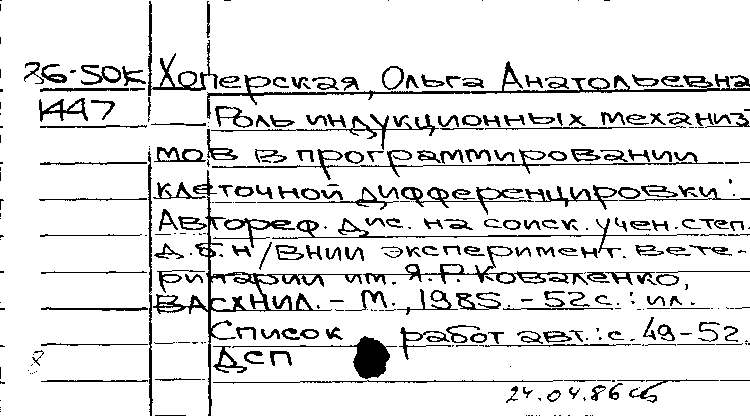 36-50к Хоперская, Ольга Анатольевна
1447 Роль индукционных механиз
мов в программировании
клеточной дифференцировки:
Автореф. дис. на соиск. учен. степ.
д.б.н/ВНИИ эксперимент. вете-
ринарии им. Я.Р. Коваленко,
ВАСХНИЛ. - М., 1985. - 52 с.: ил.
Список работ авт.: с. 49-52.
ДСП
24.04.86